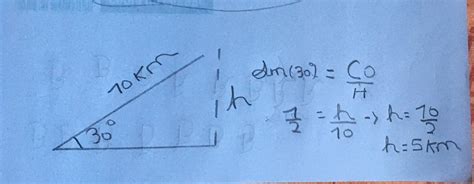 10 Km
30°
h
sen(30) = CO/H
1/2 = h/10 → h = 10/2
h = 5 Km